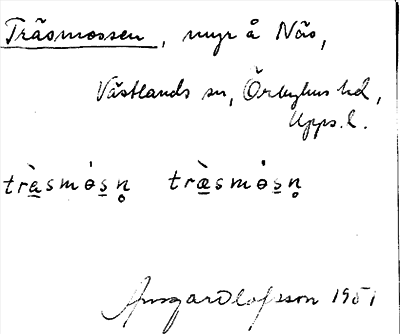 Träsmossen, myr å Näs,
Västlands sn, Örbyhus hd,
Upps. l.
trὰ̱smɵ̇s̱n̥ træ̱̀smɵ̇s̱n̥
Ansgar Olofsson 1951